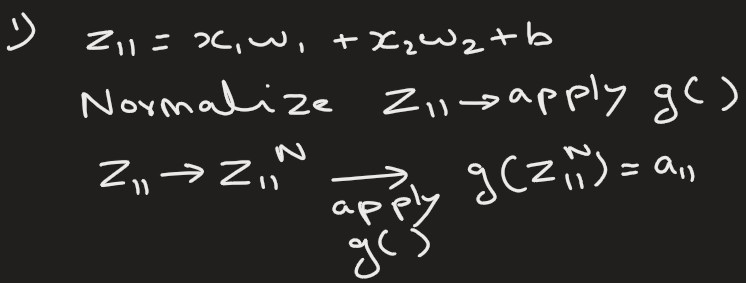 1) z₁₁ = x₁w₁ + x₂w₂ + b
Normalize z₁₁ → apply g()
z₁₁ → z₁₁ᴺ → apply g() g(z₁₁ᴺ) = a₁₁